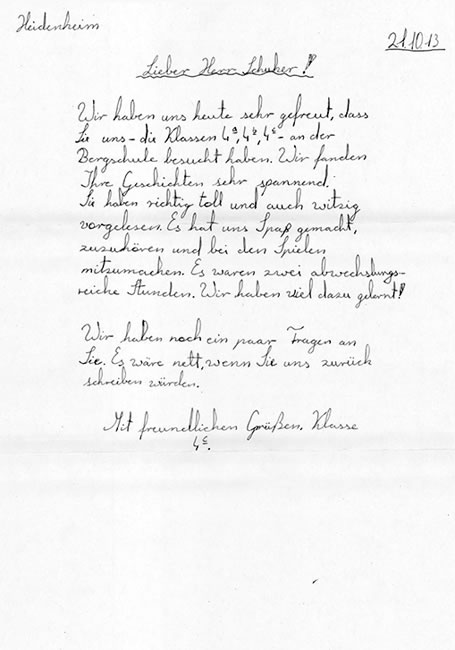 Heidenheim
21.10.13
Lieber Herr Schuker!
Wir haben uns heute sehr gefreut, dass
Sie uns - die Klassen 4a, 4b, 4c - an der
Bergschule besucht haben. Wir fanden
Ihre Geschichten sehr spannend.
Sie haben richtig toll und auch witzig
vorgelesen. Es hat uns Spaß gemacht,
zuzuhören und bei den Spielen
mitzumachen. Es waren zwei abwechslungs-
reiche Stunden. Wir haben viel dazu gelernt!
Wir haben noch ein paar Fragen an
Sie. Es wäre nett, wenn Sie uns zurück
schreiben würden.
Mit freundlichen Grüßen. Klasse
4c.